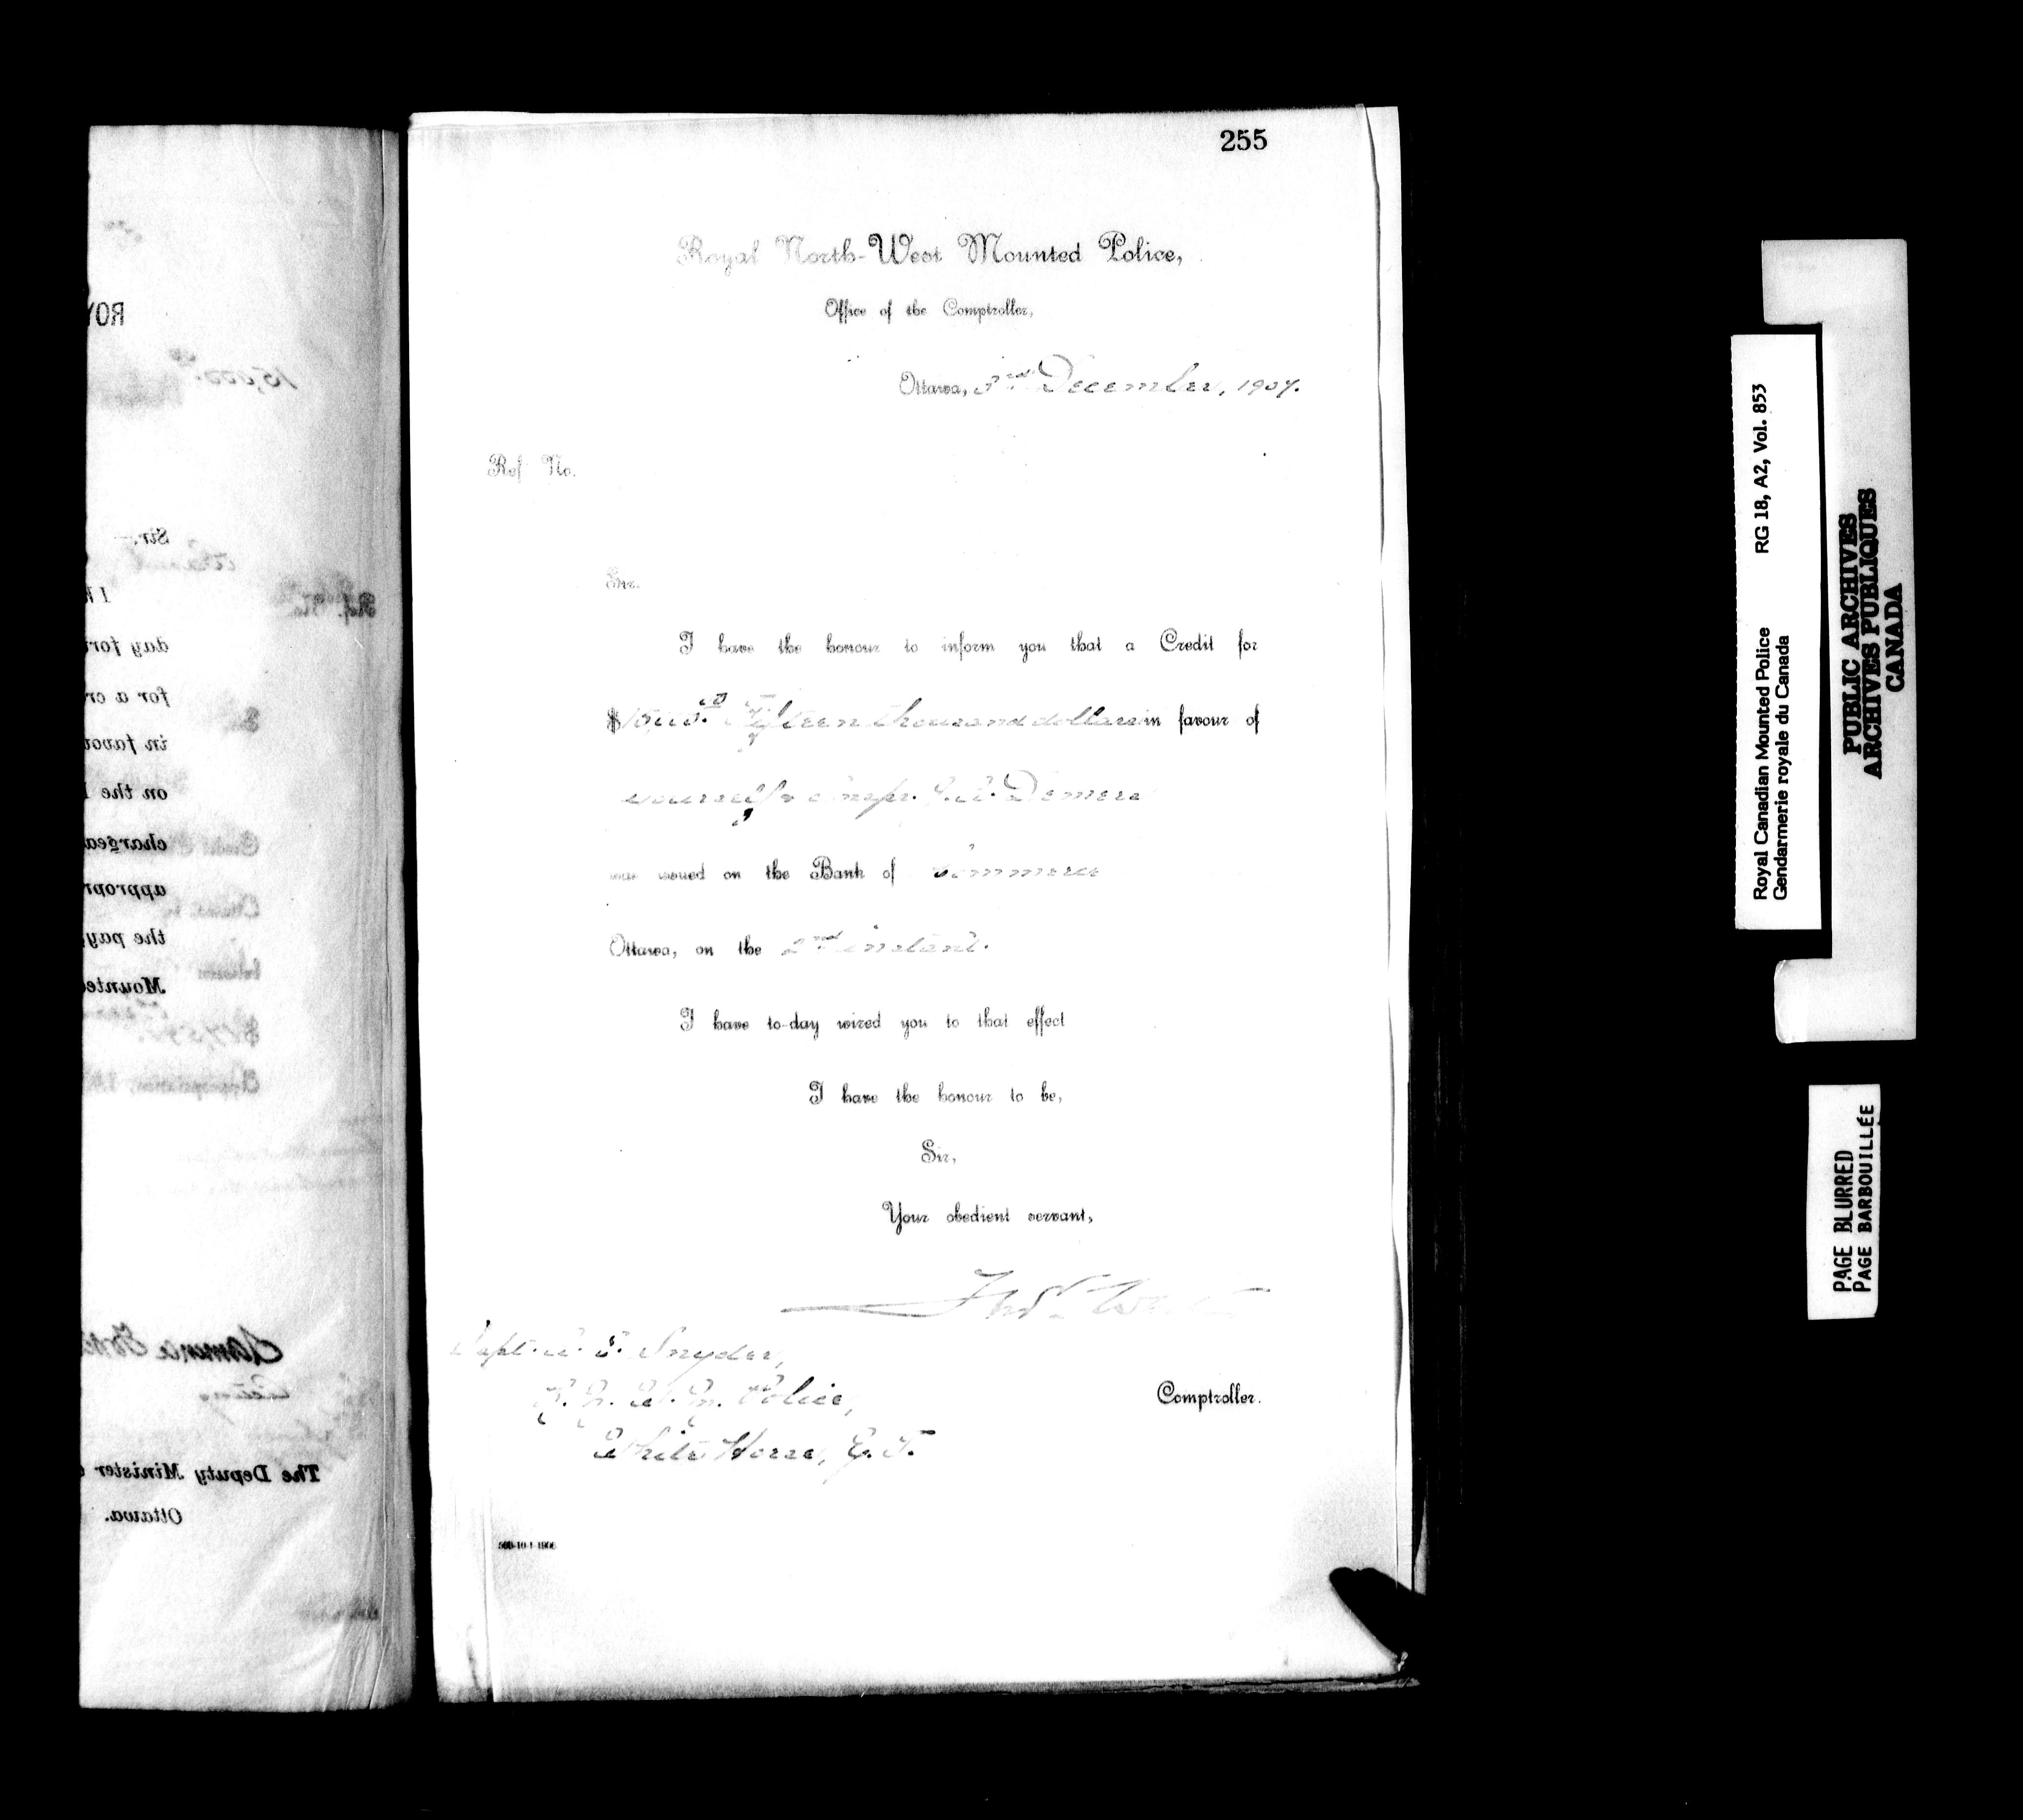 255
Royal North-West Mounted Police,
Office of the Comptroller,
Ottawa, 3rd December, 1907.
Ref No.
Sir.
I have the honour to inform you that a Credit for
$15,000.00 Fifteen thousand dollars in favour of
yourself & Insp. F. J. A. Demers
was issued on the Bank of Commerce
Ottawa, on the 2nd instant.
I have to-day wired you to that effect
I have the honour to be,
Sir,
Your obedient servant,
Fred White
Comptroller.
Supt. A. E. Snyder,
R. N. W. M. Police,
White Horse, Y. T.
500-10-1-1906
ROY
15,000.00
Sir.—
I h
day for
for a cr
in favou
on the
chargea
appropr
the pay
Mounted
The Deputy Minister
Ottawa.
Royal Canadian Mounted Police RG 18, A2, Vol. 853
Gendarmerie royale du Canada
PUBLIC ARCHIVES
ARCHIVES PUBLIQUES
CANADA
PAGE BLURRED
PAGE BARBOUILLÉE